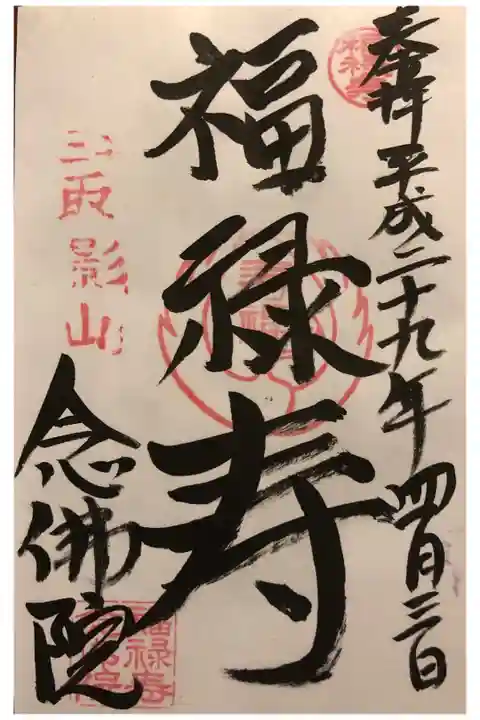 奉拝 平成二十九年四月三日
福禄寿
影山
念佛院